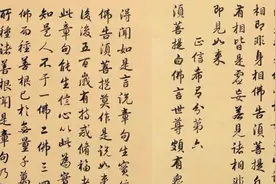 相即非身相佛告須菩提
有相皆是虛妄若見諸相非
即見如來
正信希有分第六
須菩提白佛言世尊頗有眾
得聞如是言說章句生實
佛告須菩提莫作是說如
後後五百歲有持戒修福
此章句能生信心以此為
知是人不于一佛二佛三四
佛而種善根已於無量千萬
所種諸善根聞是章句乃